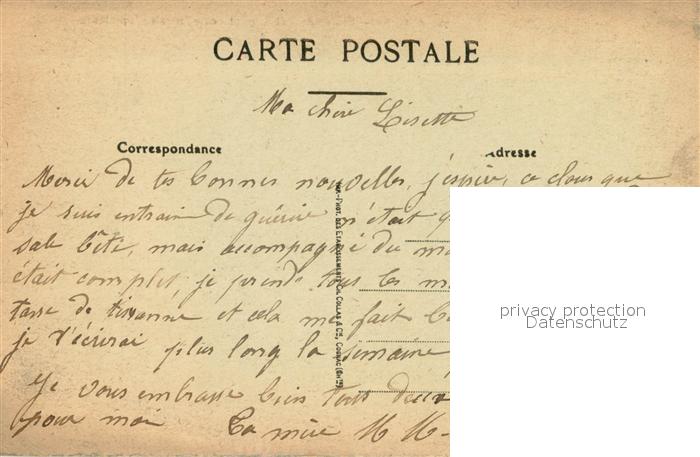 CARTE POSTALE
Ma chère Lisette
Correspondance
Adresse
Merci de tes bonnes nouvelles, j'espère, ce clous que
je suis entrain de guérir n'était
sale bête, mais accompagné du
était complet, je prends tous les
tasse de tisanne et cela me fait
je t'écrirai plus long la semaine
Je vous embrasse bien tous deux
pour moi Ta mère M M-
IMP.-PHOT. DES ETABLISSEMENTS CH. COLLAS & Cie, COGNAC (Chte)
privacy protection
Datenschutz